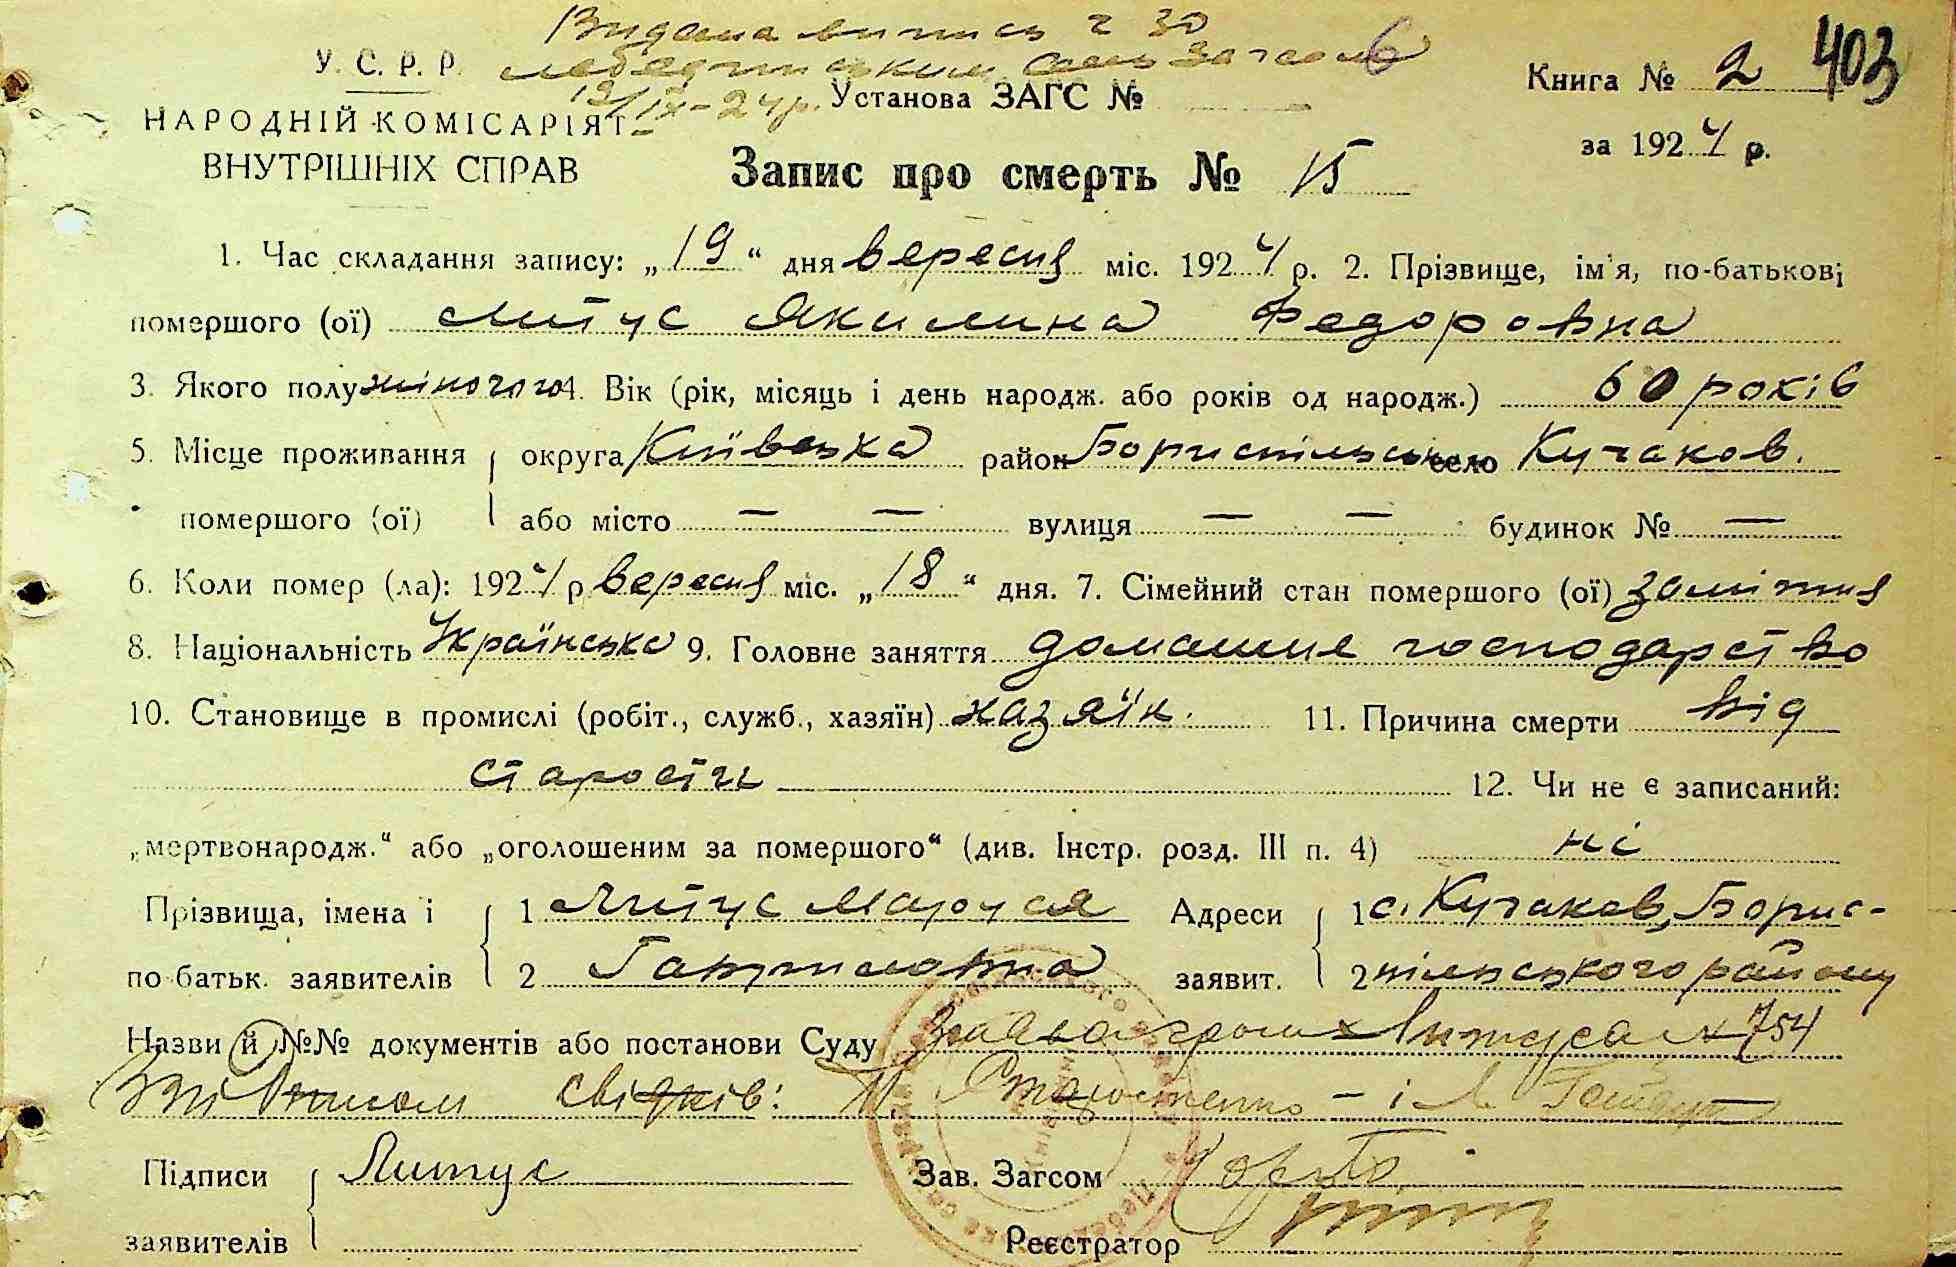 Видана витись ч 30
У. С. Р. Р.
19/IX-24р. Установа ЗАГС №
Книга № 2 403
НАРОДНІЙ КОМІСАРІЯТ
ВНУТРІШНІХ СПРАВ
за 1924 р.
Запис про смерть № 15
1. Час складання запису: „19“ дня вересня міс. 1924 р. 2. Прізвище, ім'я, по-батькові
помершого (ої) Литус Якилина Федоровна
3. Якого полу жіночого 4. Вік (рік, місяць і день народж. або років од народж.) 60 років
5. Місце проживання округа Київська район Бориспільськ село Кучаков.
помершого (ої) або місто — — вулиця — — будинок № —
6. Коли помер (ла): 1924 р вересня міс. „18“ дня. 7. Сімейний стан помершого (ої) заміжня
8. Національність Українська 9. Головне заняття домашнє господарство
10. Становище в промислі (робіт., служб., хазяїн) хазяїн. 11. Причина смерти від
старости 12. Чи не є записаний:
„мертвонародж.“ або „оголошеним за помершого“ (див. Інстр. розд. III п. 4) ні
Прізвища, імена і 1 Литус Маруся Адреси 1 с. Кучаков, Борис-
по батьк. заявителів 2 Гавриловна заявит. 2 пільського району
Назви й №№ документів або постанови Суду Заява гром Литуса № 754
свідків: Старостенко – і
Підписи Литус Зав. Загсом
заявителів Реєстратор